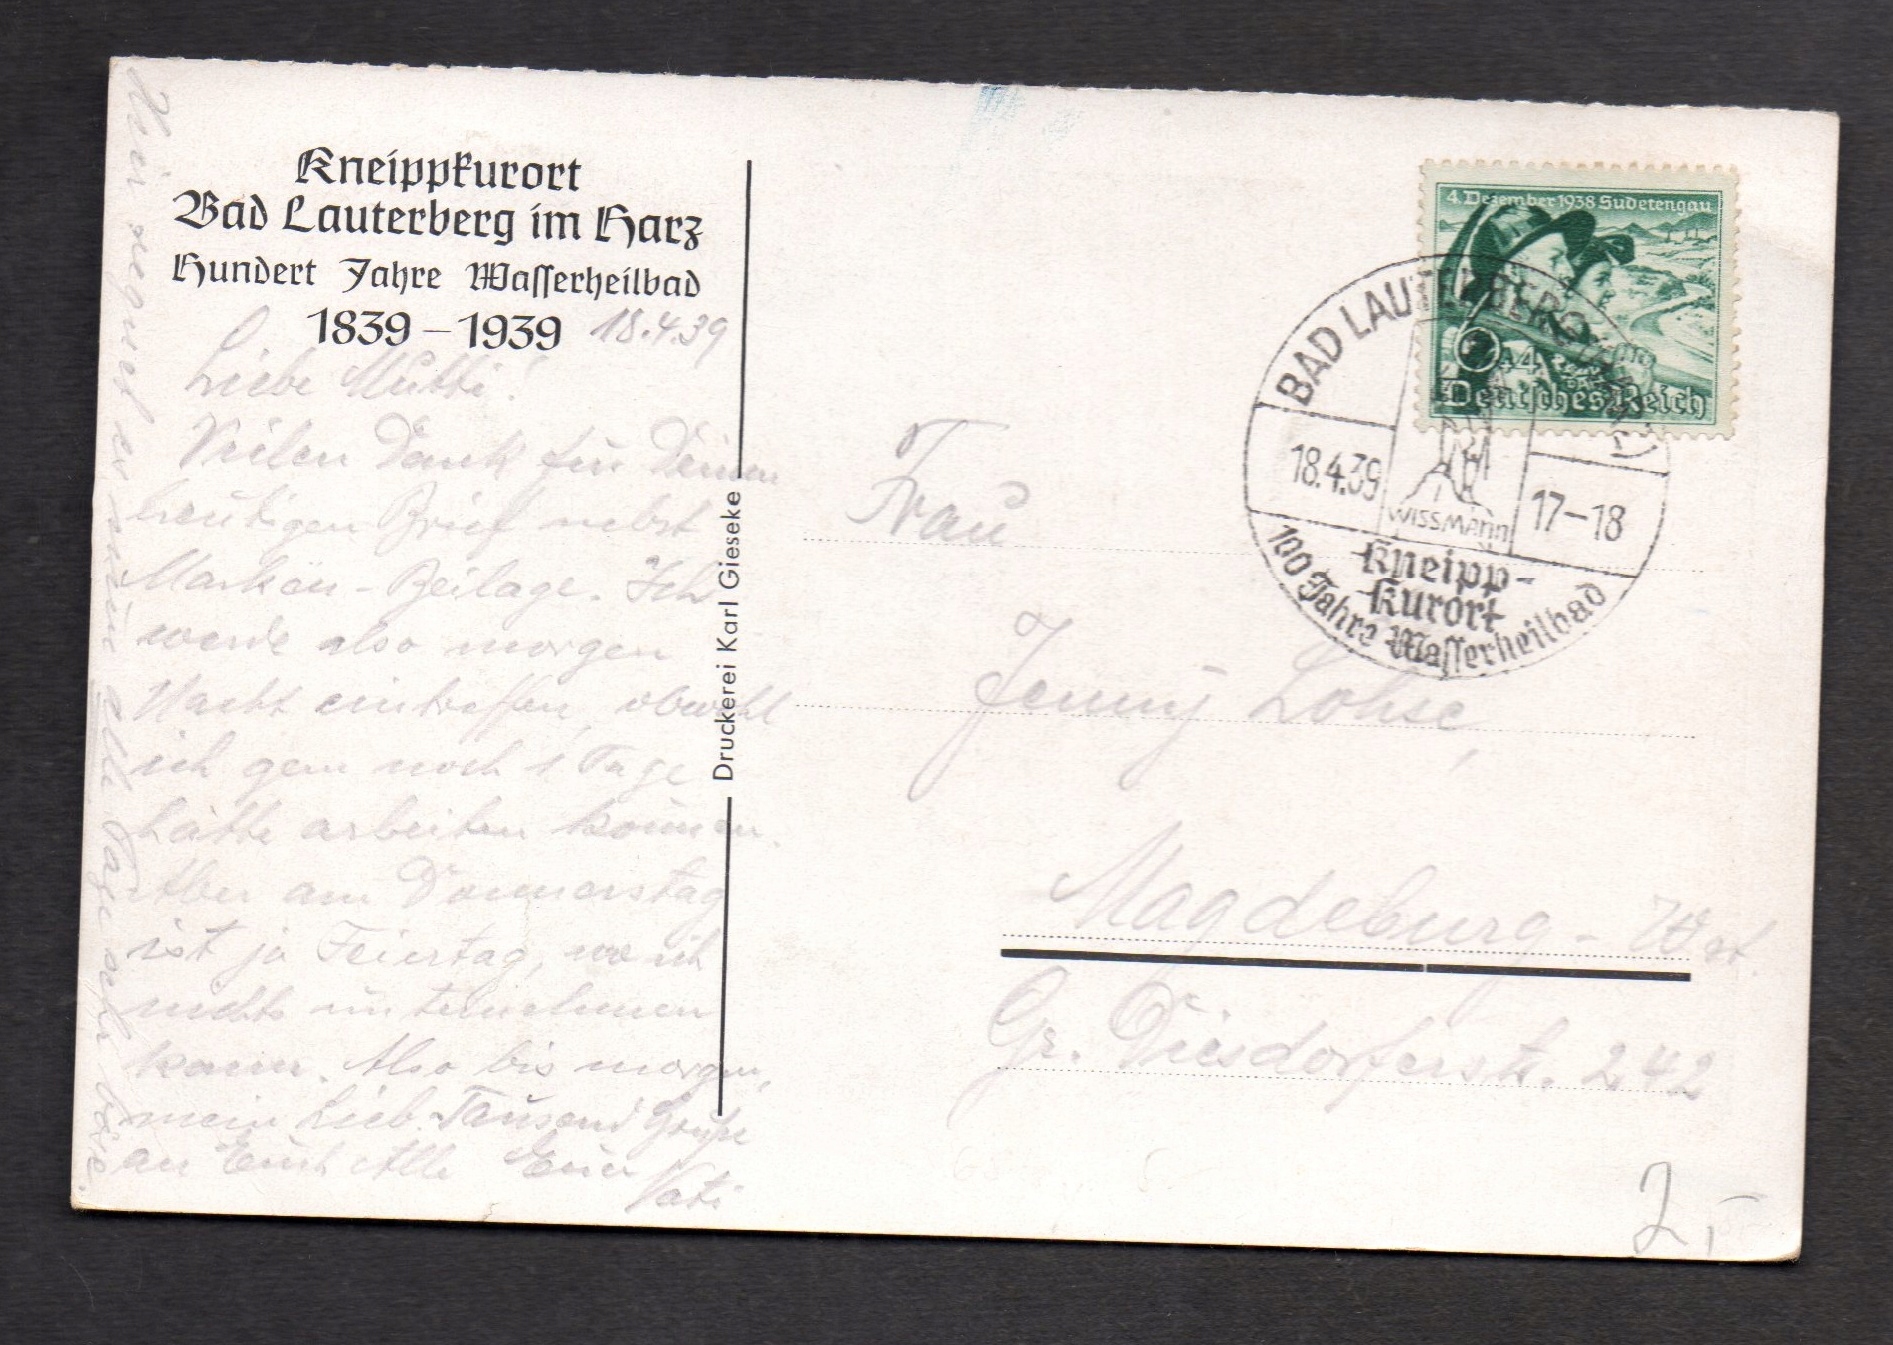 Kneippkurort
Bad Lauterberg im Harz
Hundert Jahre Wasserheilbad
1839 – 1939
18.4.39
Liebe Mutti!
Vielen Dank für Deinen
heutigen Brief nebst
Marken-Beilage. Ich
werde also morgen
Nacht eintreffen, obwohl
ich gern noch 1 Tage
hätte arbeiten können.
Aber am Donnerstag
ist ja Feiertag, wo ich
nichts unternehmen
kann. Also bis morgen,
mein Lieb. Tausend Grüße
an Euch Alle Euer
Vati
regnet es nun alle Tage sehr böse.
Druckerei Karl Gieseke
4. Dezember 1938 Sudetengau
Deutsches Reich
BAD LAUTERBERG
18.4.39
17–18
WISSMANN
Kneipp-
kurort
100 Jahre Wasserheilbad
Frau
Jenny Lohse,
Magdeburg - West.
Gr. Diesdorferstr. 242
2,-